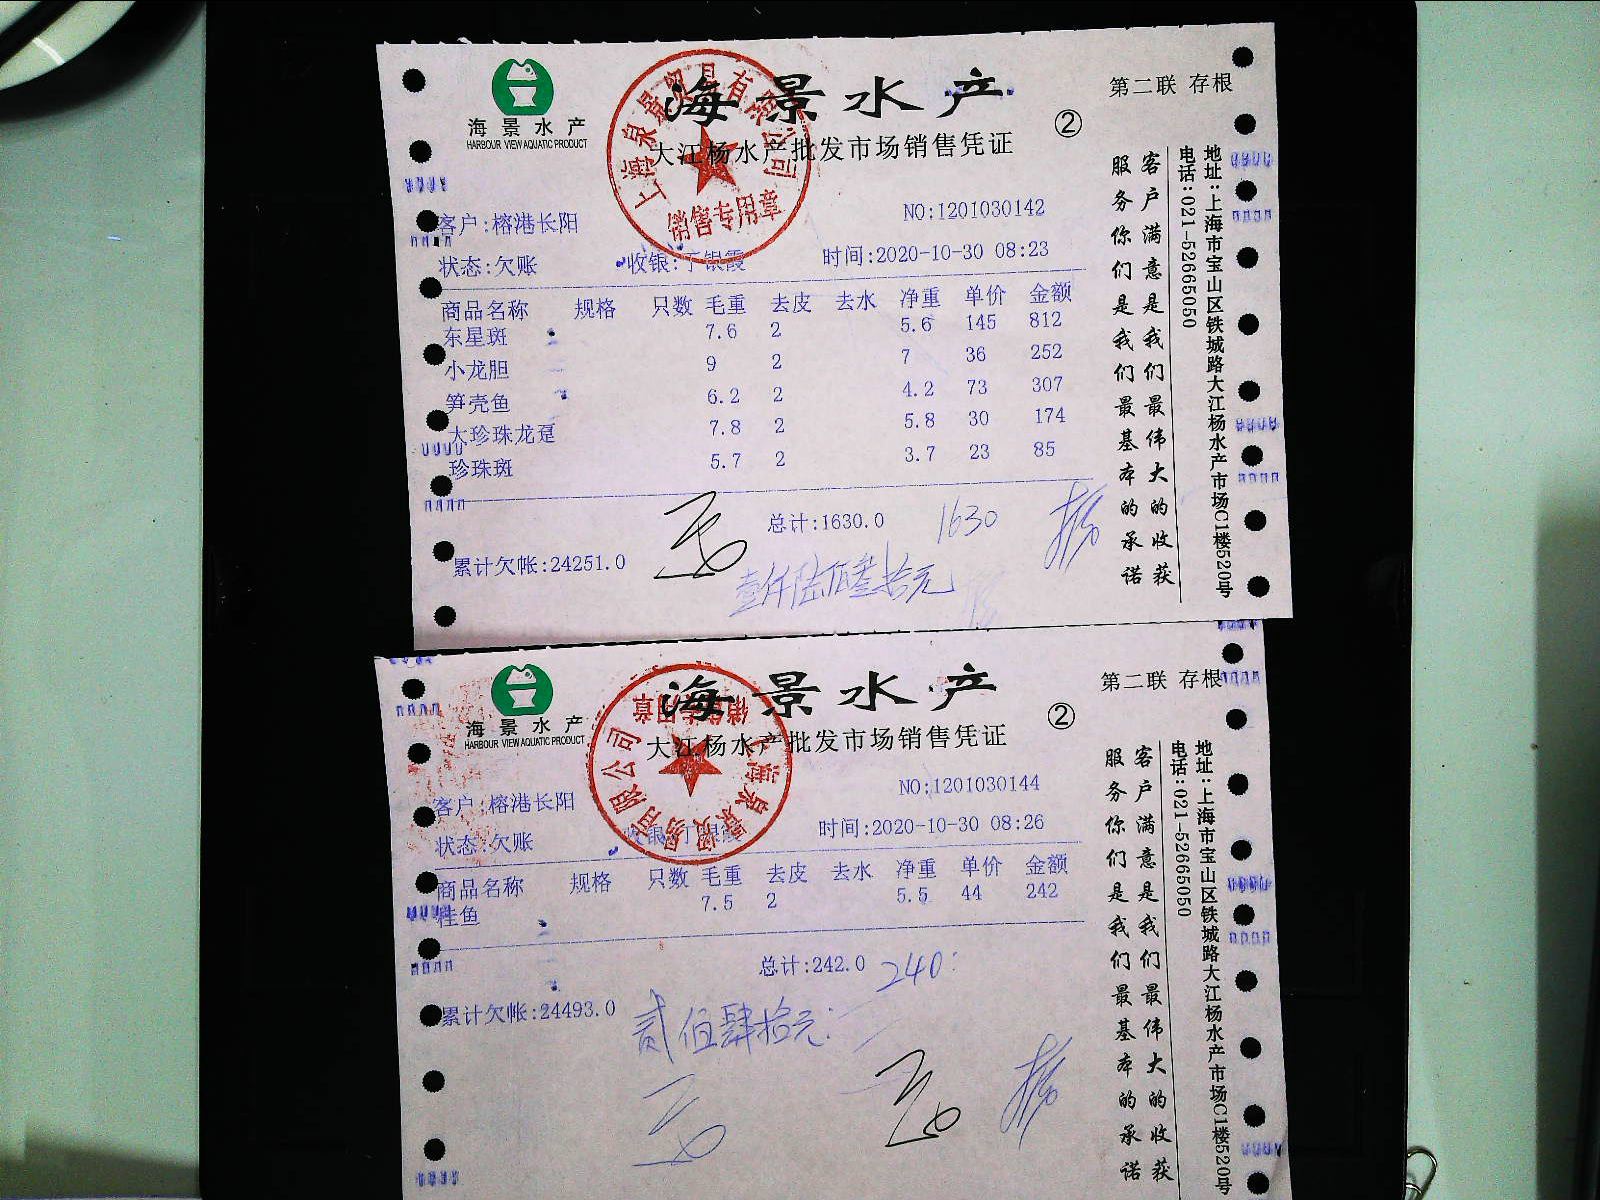 海景水产
HARBOUR VIEW AQUATIC PRODUCT
海景水产
第二联 存根
②
大江杨水产批发市场销售凭证
上海泉景贸易有限公司
销售专用章
NO:1201030142
客户:榕港长阳
状态:欠账 收银:丁银霞 时间:2020-10-30 08:23
商品名称 规格 只数 毛重 去皮 去水 净重 单价 金额
东星斑 7.6 2 5.6 145 812
小龙胆 9 2 7 36 252
笋壳鱼 6.2 2 4.2 73 307
大珍珠龙趸 7.8 2 5.8 30 174
珍珠斑 5.7 2 3.7 23 85
总计:1630.0 1630
累计欠帐:24251.0
壹仟陆佰叁拾元
客户满意是我们最伟大的收获
服务你们是我们最基本的承诺
地址:上海市宝山区铁城路大江杨水产市场C1楼520号
电话:021-52665050
海景水产
HARBOUR VIEW AQUATIC PRODUCT
海景水产
第二联 存根
②
大江杨水产批发市场销售凭证
上海泉景贸易有限公司
销售专用章
NO:1201030144
客户:榕港长阳
状态:欠账 收银:丁银霞 时间:2020-10-30 08:26
商品名称 规格 只数 毛重 去皮 去水 净重 单价 金额
桂鱼 7.5 2 5.5 44 242
总计:242.0 240
累计欠帐:24493.0
贰佰肆拾元
客户满意是我们最伟大的收获
服务你们是我们最基本的承诺
地址:上海市宝山区铁城路大江杨水产市场C1楼520号
电话:021-52665050